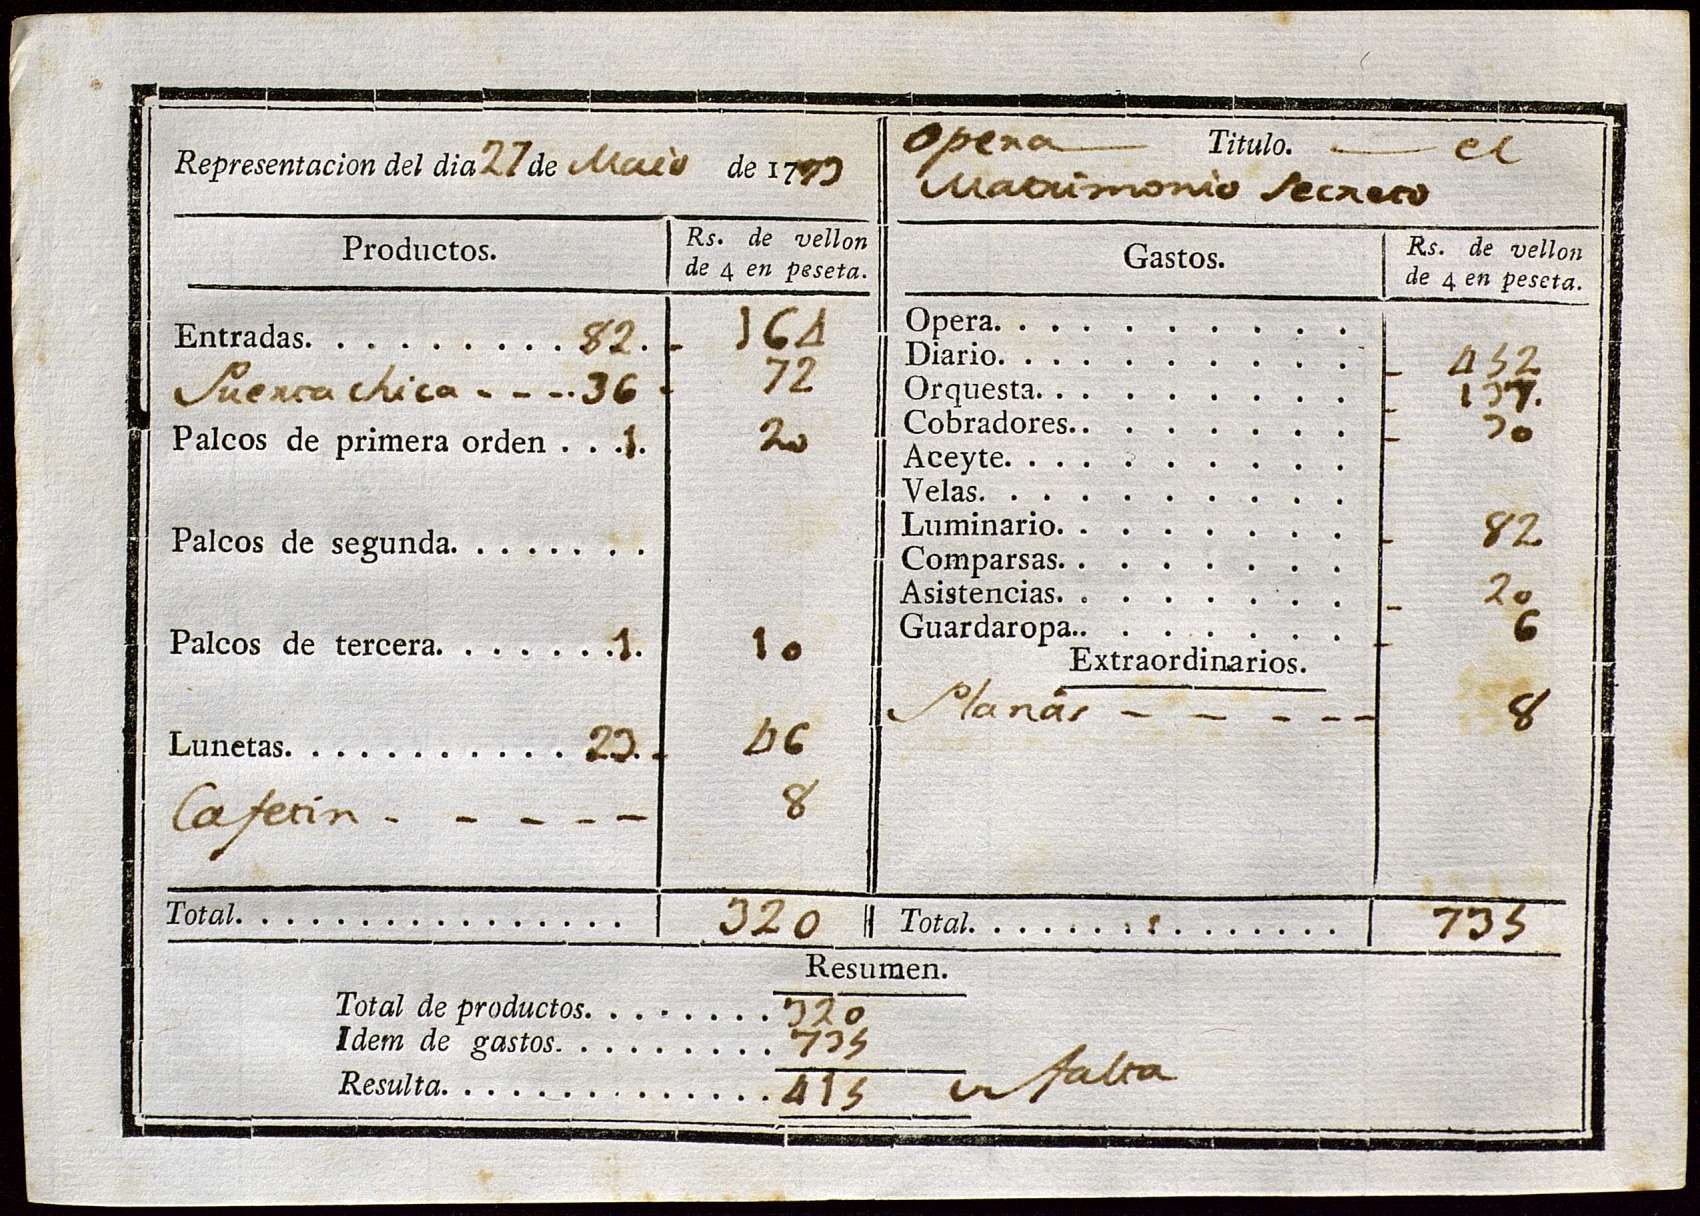 Representacion del dia 27 de Maio de 1793
Opera — Titulo. — el
Matrimonio Secreto
Productos.
Rs. de vellon
de 4 en peseta.
Entradas. . . . . . . . . . 82. - 164
Puerta chica - - - . . 36 - 72
Palcos de primera orden . . . 1. 20
Palcos de segunda. . . . . . . .
Palcos de tercera. . . . . . . 1. 10
Lunetas. . . . . . . . . . . 23. - 46
Cafetin - - - - - 8
Total. . . . . . . . . . . . . . . . . 320
Gastos.
Rs. de vellon
de 4 en peseta.
Opera. . . . . . . . . . .
Diario. . . . . . . . . . . - 452
Orquesta. . . . . . . . . . - 137.
Cobradores. . . . . . . . . - 30
Aceyte. . . . . . . . . . .
Velas. . . . . . . . . . .
Luminario. . . . . . . . . - 82.
Comparsas. . . . . . . . .
Asistencias. . . . . . . . - 20
Guardaropa. . . . . . . . - 6
Extraordinarios.
Planas - - - - - 8
Total. . . . . . . . . . . . . . . . 735
Resumen.
Total de productos. . . . . . . . . 320
Idem de gastos. . . . . . . . . . 735
Resulta. . . . . . . . . . . . . . 415 en falta